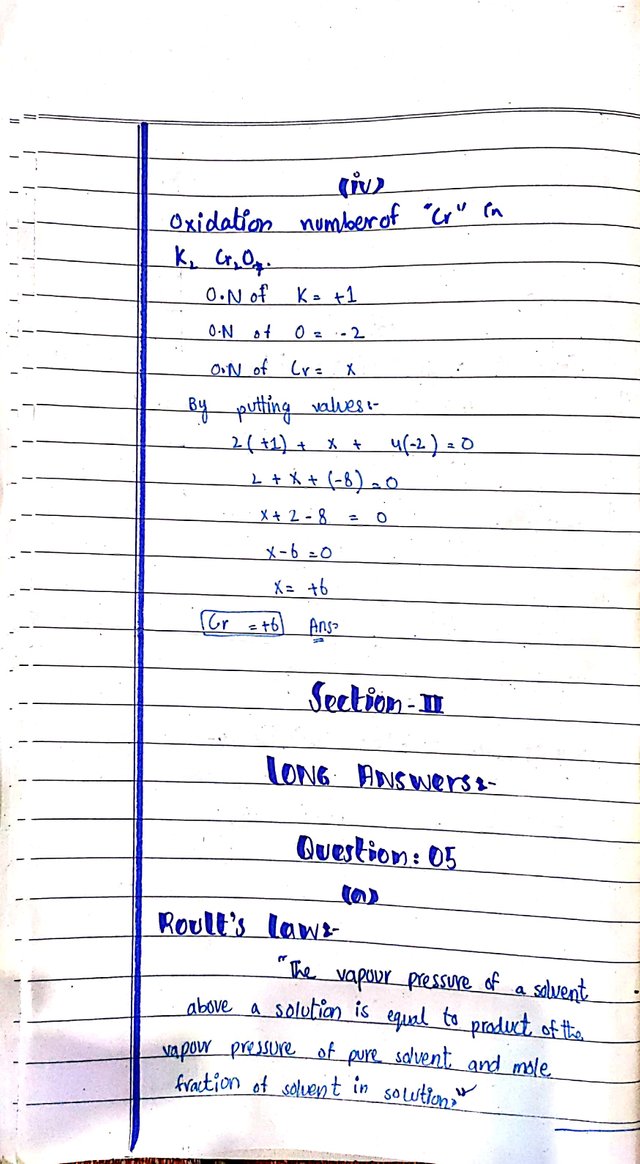 (iv)
Oxidation number of "Cr" in
K₂ Cr₂O₇.
O.N of K = +1
O.N of O = -2
O.N of Cr = x
By putting values:-
2(+1) + x + 4(-2) = 0
2 + x + (-8) = 0
x + 2 - 8 = 0
x - 6 = 0
x = +6
Cr = +6 Ans
Section-II
LONG Answers:-
Question: 05
(a)
Roult's Law:-
"The vapour pressure of a solvent
above a solution is equal to product of the
vapour pressure of pure solvent and mole
fraction of solvent in solution."